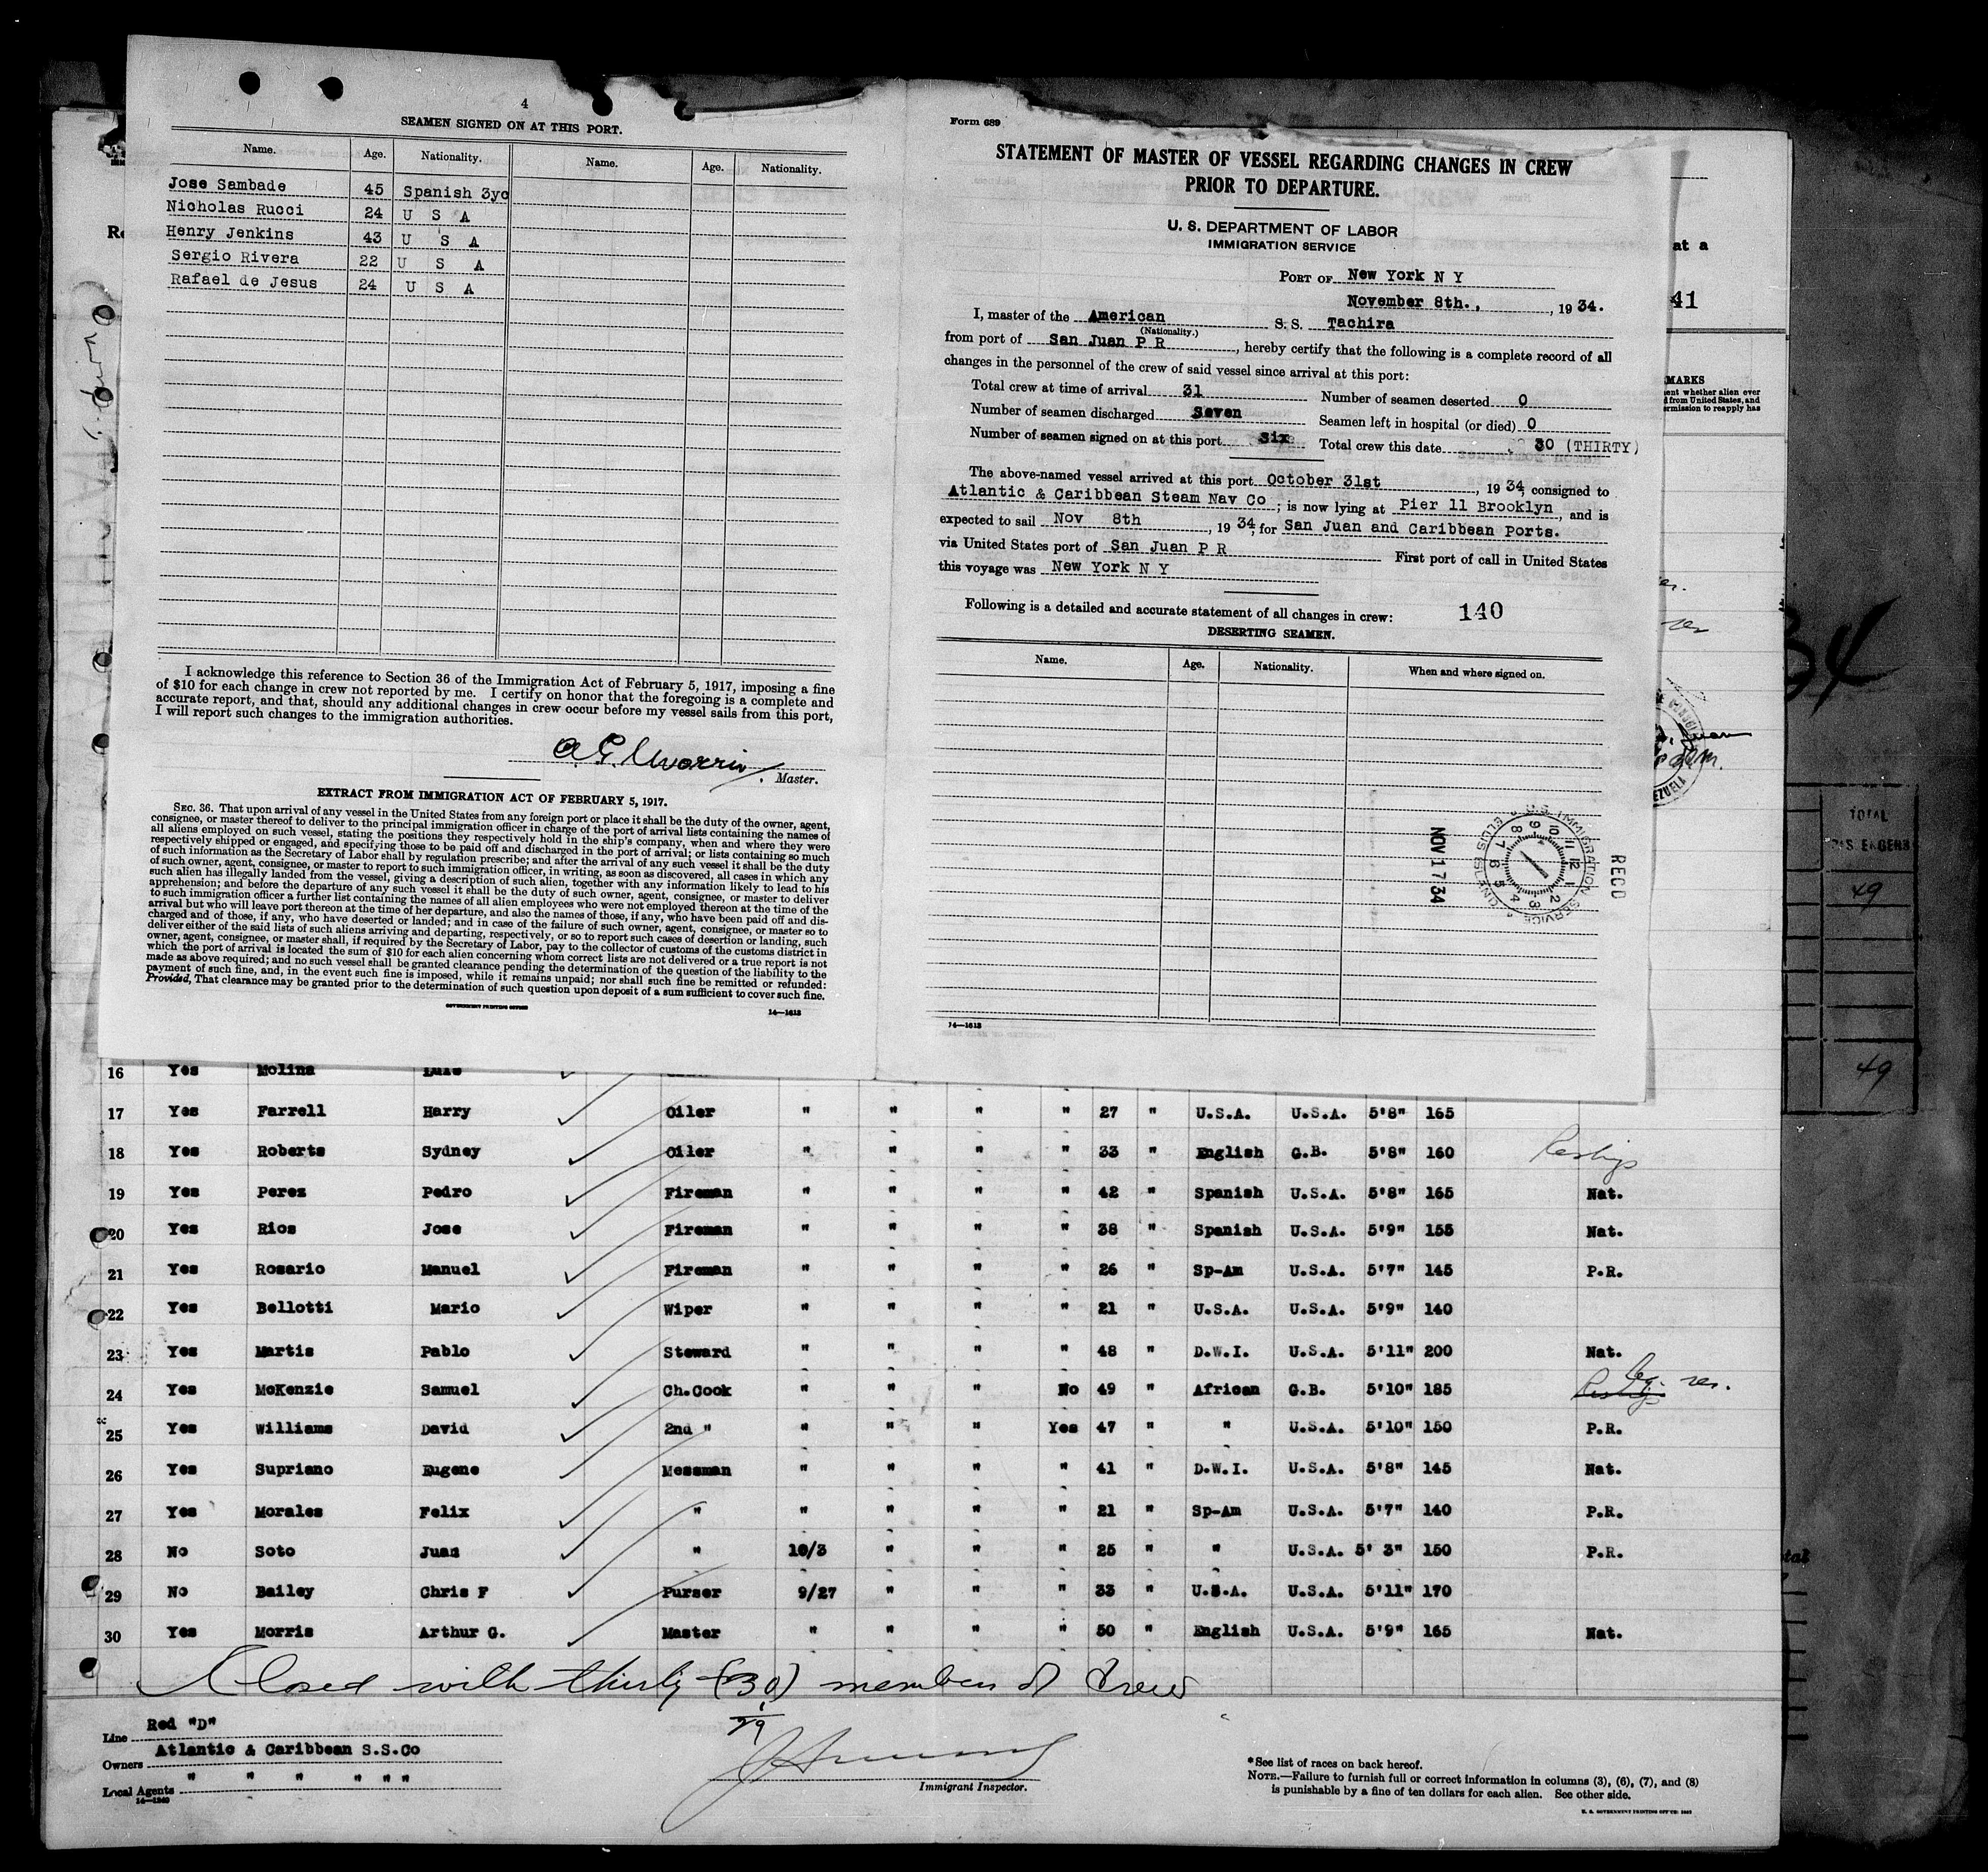 4
SEAMEN SIGNED ON AT THIS PORT.
Name. Age. Nationality. Name. Age. Nationality.
Jose Sambade 45 Spanish 3yc
Nicholas Rucci 24 U S A
Henry Jenkins 43 U S A
Sergio Rivera 22 U S A
Rafael de Jesus 24 U S A
I acknowledge this reference to Section 36 of the Immigration Act of February 5, 1917, imposing a fine
of $10 for each change in crew not reported by me. I certify on honor that the foregoing is a complete and
accurate report, and that, should any additional changes in crew occur before my vessel sails from this port,
I will report such changes to the immigration authorities.
A. G. Morris
Master.
EXTRACT FROM IMMIGRATION ACT OF FEBRUARY 5, 1917.
SEC. 36. That upon arrival of any vessel in the United States from any foreign port or place it shall be the duty of the owner, agent,
consignee, or master thereof to deliver to the principal immigration officer in charge of the port of arrival lists containing the names of
all aliens employed on such vessel, stating the positions they respectively hold in the ship's company, when and where they were
respectively shipped or engaged, and specifying those to be paid off and discharged in the port of arrival; or lists containing so much
of such information as the Secretary of Labor shall by regulation prescribe; and after the arrival of any such vessel it shall be the duty
of such owner, agent, consignee, or master to report to such immigration officer, in writing, as soon as discovered, all cases in which any
such alien has illegally landed from the vessel, giving a description of such alien, together with any information likely to lead to his
apprehension; and before the departure of any such vessel it shall be the duty of such owner, agent, consignee, or master to deliver
to such immigration officer a further list containing the names of all alien employees who were not employed thereon at the time of the
arrival but who will leave port thereon at the time of her departure, and also the names of those, if any, who have been paid off and dis-
charged and of those, if any, who have deserted or landed; and in case of the failure of such owner, agent, consignee, or master so to
deliver either of the said lists of such aliens arriving and departing, respectively, or so to report such cases of desertion or landing, such
owner, agent, consignee, or master shall, if required by the Secretary of Labor, pay to the collector of customs of the customs district in
which the port of arrival is located the sum of $10 for each alien concerning whom correct lists are not delivered or a true report is not
made as above required; and no such vessel shall be granted clearance pending the determination of the question of the liability to the
payment of such fine, and, in the event such fine is imposed, while it remains unpaid; nor shall such fine be remitted or refunded:
Provided, That clearance may be granted prior to the determination of such question upon deposit of a sum sufficient to cover such fine.
GOVERNMENT PRINTING OFFICE 14—1613
Form 689
STATEMENT OF MASTER OF VESSEL REGARDING CHANGES IN CREW
PRIOR TO DEPARTURE.
U. S. DEPARTMENT OF LABOR
IMMIGRATION SERVICE
PORT OF New York N Y
November 8th., , 1934.
I, master of the American S. S. Tachira
(Nationality.)
from port of San Juan P R, hereby certify that the following is a complete record of all
changes in the personnel of the crew of said vessel since arrival at this port:
Total crew at time of arrival 31 Number of seamen deserted 0
Number of seamen discharged Seven Seamen left in hospital (or died) 0
Number of seamen signed on at this port six Total crew this date 30 (THIRTY)
The above-named vessel arrived at this port October 31st, 1934, consigned to
Atlantic & Caribbean Steam Nav Co; is now lying at Pier 11 Brooklyn, and is
expected to sail Nov 8th, 1934, for San Juan and Caribbean Ports.
via United States port of San Juan P R First port of call in United States
this voyage was New York N Y
Following is a detailed and accurate statement of all changes in crew: 140
DESERTING SEAMEN.
Name. Age. Nationality. When and where signed on.
RECD
U.S. IMMIGRATION SERVICE ELLIS IS
NOV 17 34
14—1613
at a
41
MARKS
34
TOTAL
49
49
16 Yes Molina
17 Yes Farrell Harry Oiler " " " " 27 " U.S.A. U.S.A. 5'8" 165
18 Yes Roberts Sydney Oiler " " " " 33 " English G.B. 5'8" 160
19 Yes Perez Pedro Fireman " " " " 42 " Spanish U.S.A. 5'8" 165 Nat.
20 Yes Rios Jose Fireman " " " " 38 " Spanish U.S.A. 5'9" 155 Nat.
21 Yes Rosario Manuel Fireman " " " " 26 " Sp-Am U.S.A. 5'7" 145 P.R.
22 Yes Bellotti Mario Wiper " " " " 21 " U.S.A. U.S.A. 5'9" 140
23 Yes Martis Pablo Steward " " " " 48 " D.W.I. U.S.A. 5'11" 200 Nat.
24 Yes McKenzie Samuel Ch.Cook " " " No 49 " African G.B. 5'10" 185 leg. res.
25 Yes Williams David 2nd " " " " Yes 47 " " U.S.A. 5'10" 150 P.R.
26 Yes Supriano Eugene Messman " " " " 41 " D.W.I. U.S.A. 5'8" 145 Nat.
27 Yes Morales Felix " " " " " 21 " Sp-Am U.S.A. 5'7" 140 P.R.
28 No Soto Juan " 10/3 " " " 25 " " U.S.A. 5' 3" 150 P.R.
29 No Bailey Chris F Purser 9/27 " " " 33 " U.S.A. U.S.A. 5'11" 170
30 Yes Morris Arthur G. Master " " " " 50 " English U.S.A. 5'9" 165 Nat.
Closed with thirty (30) members of Crew
1/29
Line Red "D"
Owners Atlantic & Caribbean S.S.Co
Local Agents " " " " " "
14—1240
Immigrant Inspector.
*See list of races on back hereof.
NOTE.—Failure to furnish full or correct information in columns (3), (6), (7), and (8)
is punishable by a fine of ten dollars for each alien. See other side.